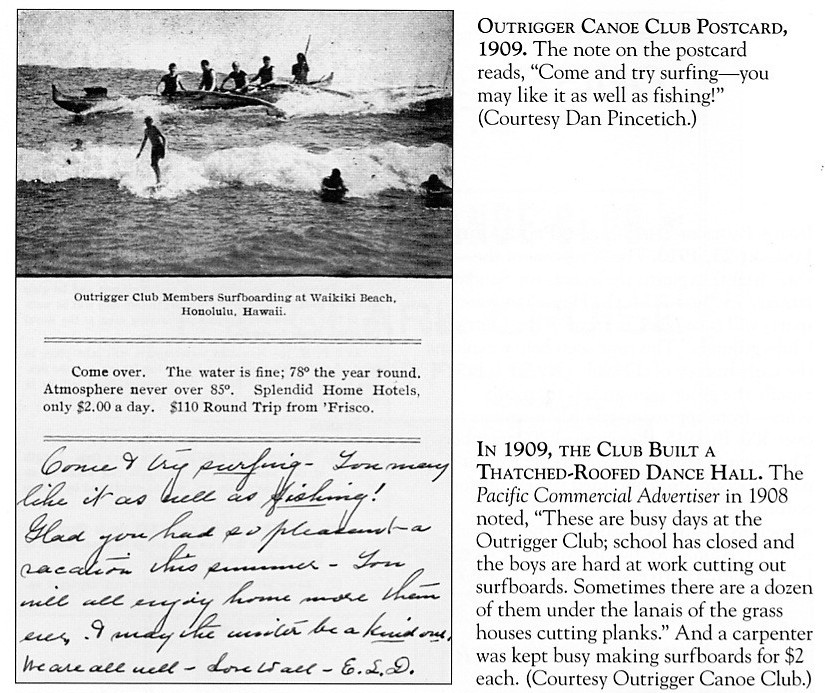 Outrigger Club Members Surfboarding at Waikiki Beach,
Honolulu, Hawaii.
Come over. The water is fine; 78° the year round.
Atmosphere never over 85°. Splendid Home Hotels,
only $2.00 a day. $110 Round Trip from 'Frisco.
Come & try surfing - You may
like it as well as fishing!
Glad you had so pleasant a
vacation this summer - You
will all enjoy home more than
ever. & may the winter be a kind one.
We are all well - Love to all - E.L.D.
OUTRIGGER CANOE CLUB POSTCARD,
1909. The note on the postcard
reads, “Come and try surfing—you
may like it as well as fishing!”
(Courtesy Dan Pincetich.)
IN 1909, THE CLUB BUILT A
THATCHED-ROOFED DANCE HALL. The
Pacific Commercial Advertiser in 1908
noted, “These are busy days at the
Outrigger Club; school has closed and
the boys are hard at work cutting out
surfboards. Sometimes there are a dozen
of them under the lanais of the grass
houses cutting planks.” And a carpenter
was kept busy making surfboards for $2
each. (Courtesy Outrigger Canoe Club.)